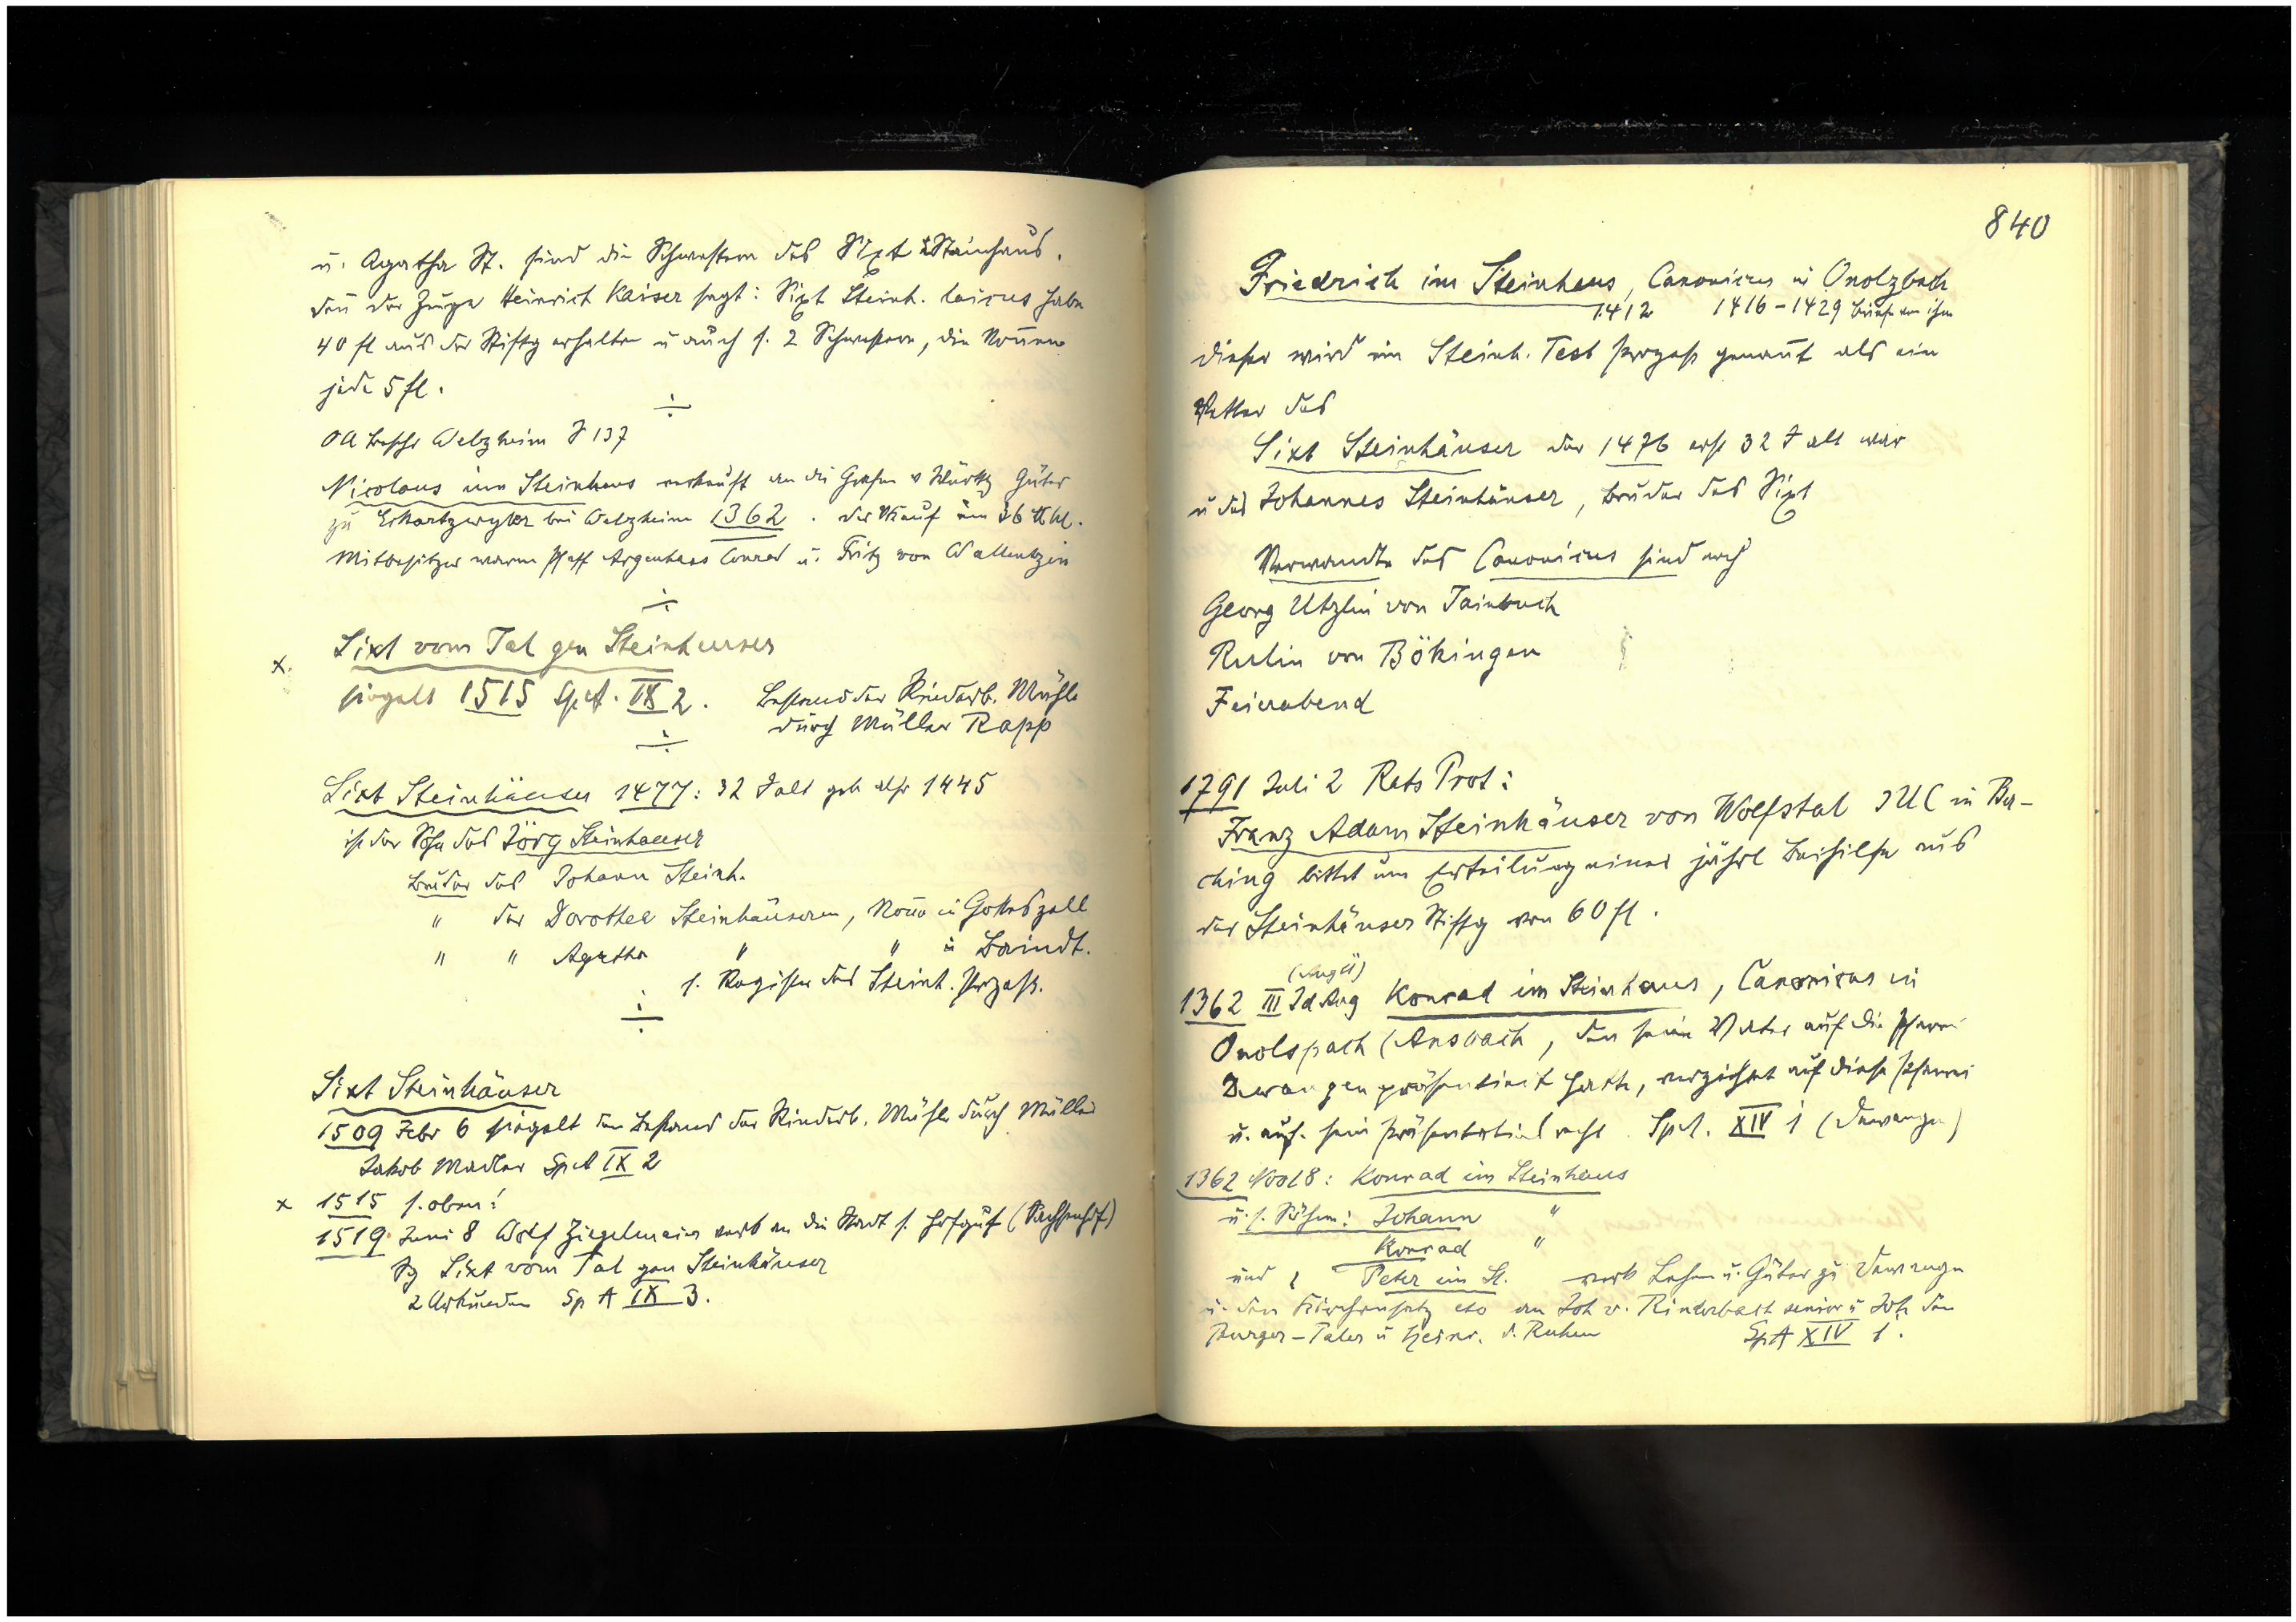 u. Agatha St. sind die Schwestern des Sixt Stainhaus.
den der Zeuge Heinrich Kaiser sagt: Sixt Steinh. laicus habe
40 fl aus der Stiftg erhalten u auch s. 2 Schwestern, die Nonnen
jede 5 fl.
OA Beschr Welzheim S 137
Nicolaus im Steinhaus verkauft an die Grafen v Württ Güter
zu Eckartzwyler bei Welzheim 1362. der Kauf um 36 ℔ hl.
Mitbesitzer waren Pfaff Argenhaas Conrad u. Fritz von
x. Sixt vom Tal gen Steinheuser
siegelt 1515 SpA. IX 2. Bestand der Rinderb. Mühle
durch Müller Rapp
Sixt Steinhäuser 1477: 32 J alt geb also 1445
ist der Sohn des Jörg Steinhauser
Bruder des Johann Steinh.
" der Dorothea Steinhäuseren, Noñe in Gotteszell
" " Agatha " " in Baindt.
s. Register des Steinh. Prozess.
Sixt Steinhäuser
1509 Febr 6 siegelt den Bestand der Rinderb. Mühle durch Müller
Jakob Madler SpA IX 2
x 1515 s. oben!
1519 Juni 8 Wolf Ziegelmeier verk an die Stadt s. Hofgut (Sachsenhof)
Sg Sixt vom Tal gen Steinhäuser
2 Urkunden Sp A IX 3.
840
Friedrich im Steinhaus, Canonicus in Onolzbach
1412 1416-1429 Briefe von ihm
dieser wird im Steinh. Test prozess genañt als ein
Vetter des
Sixt Steinhäuser der 1476 erst 32 J alt war
u des Johannes Steinhäuser, Bruder des Sixt
Verwandte des Canonicus sind noch
Georg Utzlin von Tainbuch
Rulin von Bökingen
Feierabend
1791 Juli 2 Rats Prot:
Franz Adam Steinhäuser von Wolfstal JUC in Ba-
ching bittet um Erteilung einer jährl Beihilfe aus
der Steinhäuser Stiftg von 60 fl.
(Aug 11)
1362 III Id Aug Konrad im Steinhaus, Canonicus in
Onolspach (Ansbach, den sein Vater auf die Pfarrei
Dewangen präsentiert hatte, verzichtet auf diese Pfarrei
u. auf sein Präsentationsrecht SpA. XIV 1 (Dewangen)
1362 Nov 18: Konrad im Steinhaus
u. s. Söhne: Johann "
Konrad "
und Peter im St. verk Lehen u. Güter zu Dewangen
u. den Kirchensatz etc an Joh v. Rinderbach senior u Joh den
Burger-Taler u Heinr. d. Ruhen SpA XIV 1.